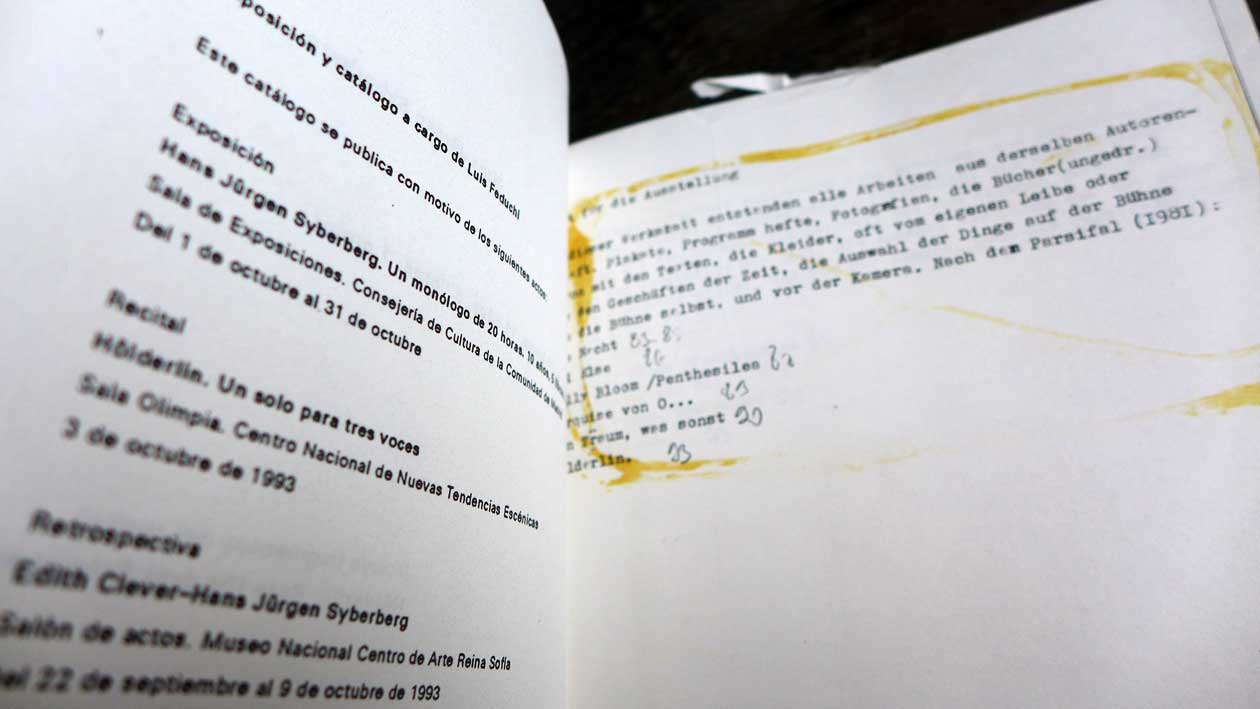 posición y catálogo a cargo de Luis Feduchi
Este catálogo se publica con motivo de los siguientes actos:
Exposición
Hans Jürgen Syberberg. Un monólogo de 20 horas. 10 años, 5
Sala de Exposiciones. Consejería de Cultura de la Comunidad de
Del 1 de octubre al 31 de octubre
Recital
Hölderlin. Un solo para tres voces
Sala Olimpia. Centro Nacional de Nuevas Tendencias Escénicas
3 de octubre de 1993
Retrospectiva
Edith Clever-Hans Jürgen Syberberg
Salón de actos. Museo Nacional Centro de Arte Reina Sofía
Del 22 de septiembre al 9 de octubre de 1993
für die Ausstellung
dieser entstanden alle Arbeiten aus derselben Autoren-
Plakate, Programm hefte, Fotografien, die Bücher(ungedr.)
mit den Texten, die Kleider, oft vom eigenen Leibe oder
den Geschäften der Zeit, die Auswahl der Dinge auf der Bühne
die Bühne selbst, und vor der Kamera. Nach dem Parsifal (1981):
Nacht
lly Bloom /Penthesilea
rquise von O...
Traum, was sonst
lderlin.